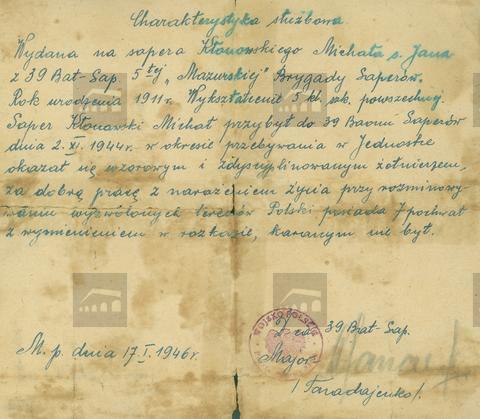 Charakterystyka służbowa
Wydana na sapera Kłonowskiego Michała s. Jana
z 39 Bat. Sap. 5tej "Mazurskiej" Brygady Saperów.
Rok urodzenia 1911 r. Wykształcenie 5 kl. szk. powszechnej.
Saper Kłonowski Michał przybył do 39 Baonu Saperów
dnia 2.XI.1944 r. w okresie przebywania w Jednostce
okazał się wzorowym i zdyscyplinowanym żołnierzem,
za dobrą pracę z narażeniem życia przy rozminowy-
waniu wyzwolonych terenów Polski posiada 7 pochwał
z wymienieniem w rozkazie, karanym nie był.
39 Bat. Sap.
WOJSKO POLSKIE
M. p. dnia 17.I.1946 r.
Major
/Taradajenko/.